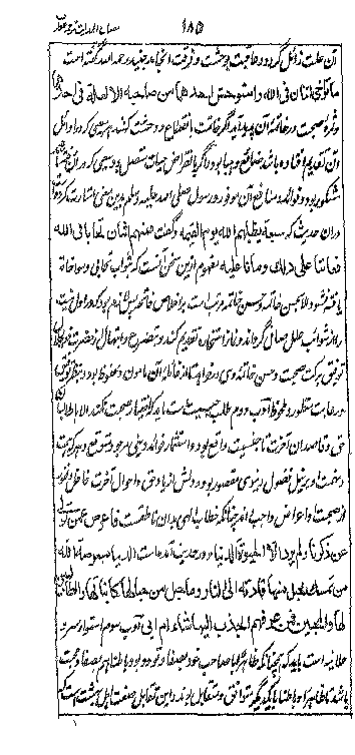 ١٨٥
آن علت زائل گردد و عاقبت بوحشت و فرقت انجامد جنید رحمه الله گفته است
ما تواخی اثنان فی الله واستوحش احدهما من صاحبه الا لعلة فی احدهما
صحبت در خاتمت آن پدید آید اگر خاتمت بانقطاع و وحشت کشد هر سعیی که در اوائل
آن تقدیم افتاده باشد ضائع و هبا بود و اگر بانقراض حیات متصل بود سعیی که در آن
مشکور بود و فوائد و منافع آن موفور و رسول صلی الله علیه وسلم بدین معنی اشارت کرده
در آن حدیث که سبعة یظلهم الله یوم القیمة و گفت فمنهم اثنان تحابا فی الله
فعاشا علی ذلک وماتا علیه مفهوم ازین سخن آنست که ثواب تحابی و مواخاة
یافته نشود الا بحسن خاتمه و حسن خاتمه مرتب است بر اخلاص فاتحه پس لازم بود که در اول نیت
را از شوائب علل صافی گرداند و نماز استخارت تقدیم کند و بتضرع و ابتهال از حضرت الهی
توفیق برکت صحبت و حسن خاتمه وی درخواهد تا از غائله آن مامون و محفوظ بود و بنظر توفیق
و رعایت منظور و ملحوظ ادب دوم طلب جنسیت است باید که اختیار صحبت نکند الا با طالبان
حق و قاصدان آخرت تا جنسیت واقع بود و استثمار فوائد دینی مرجو و متوقع و هر که نیت
و همت او بر نیل فضول دنیوی مقصور بود و دلش از یاد حق و احوال آخرت غافل
از صحبت او اعراض واجب داند چنانکه خطاب الهی بدان ناطقست فاعرض عمن تولی
عن ذکرنا ولم یرد الا الحیوة الدنیا و در حدیث آمده است الدنیا
من تمسک بحبل منها قادته الی النار و ما حبل من حبالها کابنائها والطالبین
لها والمحبین فمن عرفهم انجذب الیها شاء ام ابی ادب سوم استواء سر و
علانیه است باید که همچنانکه ظاهرا با صاحب خود بصفا و تودد بود باطنا هم بصفا و محبت
باشد تا ظاهر او با باطن با یکدیگر متوافق و متقابل بوند و این تقابل صفت اهل بهشت است که